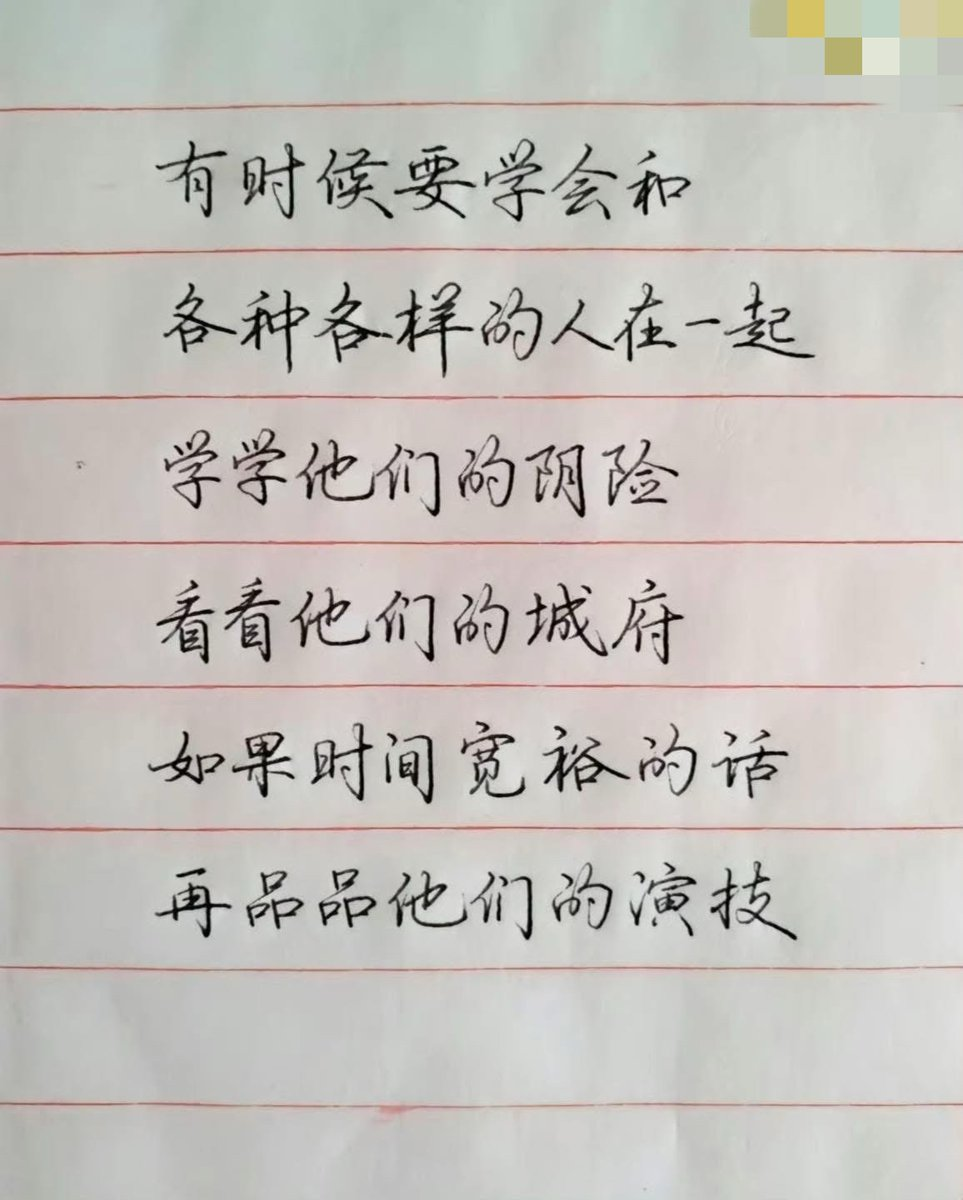 有时候要学会和
各种各样的人在一起
学学他们的阴险
看看他们的城府
如果时间宽裕的话
再品品他们的演技